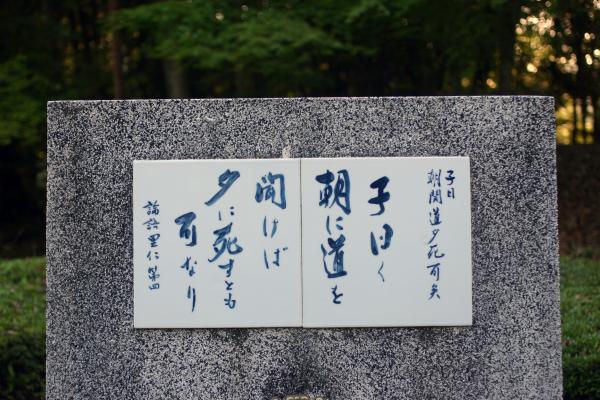 子曰
朝聞道夕死可矣
子曰く
朝に道を
聞けば
夕に死すとも
可なり
論語里仁第四